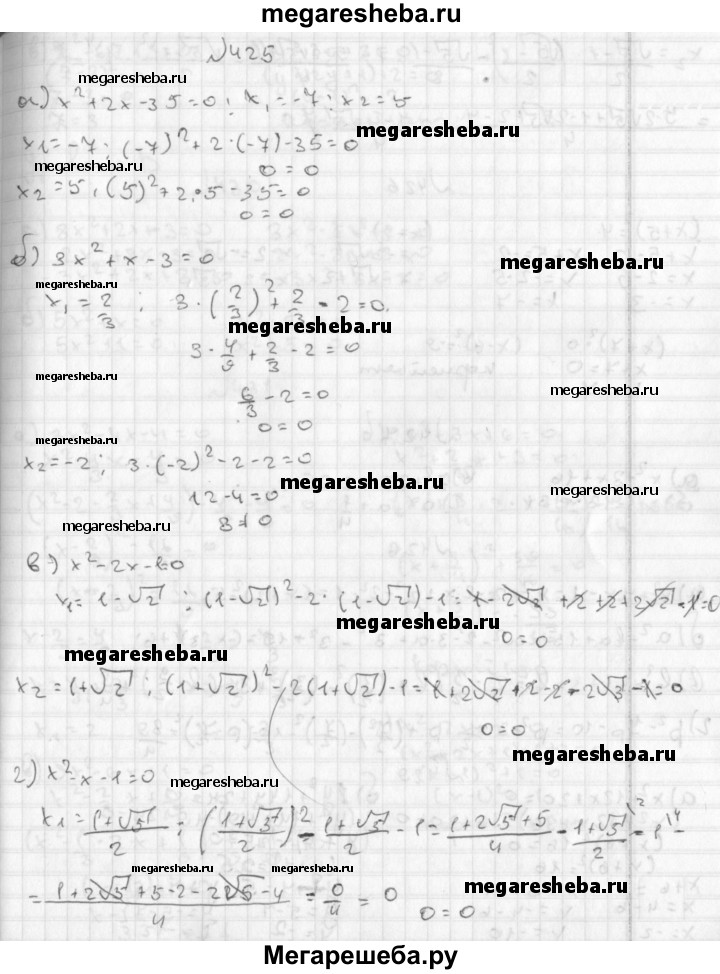 megaresheba.ru
№425
megaresheba.ru
а) x² + 2x - 35 = 0 ; x₁ = -7 ; x₂ = 5
megaresheba.ru
x₁ = -7 ; (-7)² + 2·(-7) - 35 = 0
megaresheba.ru
0 = 0
x₂ = 5 ; (5)² + 2·5 - 35 = 0
0 = 0
б) 3x² + x - 3 = 0
megaresheba.ru
megaresheba.ru
x₁ = 2/3 ; 3·(2/3)² + 2/3 - 2 = 0.
megaresheba.ru
3·4/9 + 2/3 - 2 = 0
megaresheba.ru
megaresheba.ru
6/3 - 2 = 0
0 = 0
megaresheba.ru
x₂ = -2 ; 3·(-2)² - 2 - 2 = 0
megaresheba.ru
megaresheba.ru
12 - 4 = 0
8 ≠ 0
megaresheba.ru
в) x² - 2x - 1 = 0
x₁ = 1 - √2 ; (1 - √2)² - 2·(1 - √2) - 1 = 1 - 2√2 + 2 + 2 + 2√2 - 1 = 0
megaresheba.ru
0 = 0
megaresheba.ru
x₂ = 1 + √2 ; (1 + √2)² - 2(1 + √2) - 1 = 1 + 2√2 + 2 - 2 - 2√3 - 1 = 0
0 = 0
megaresheba.ru
г) x² - x - 1 = 0
megaresheba.ru
x₁ = (1 + √5)/2 ; ((1 + √5)/2)² - (1 + √5)/2 - 1 = (1 + 2√5 + 5)/4 - (1 + √5)/2 \² - 1 \⁴ =
megaresheba.ru
megaresheba.ru
megaresheba.ru
= (1 + 2√5 + 5 - 2 - 2√5 - 4)/4 = 0/4 = 0
0 = 0
Мегарешеба.ру